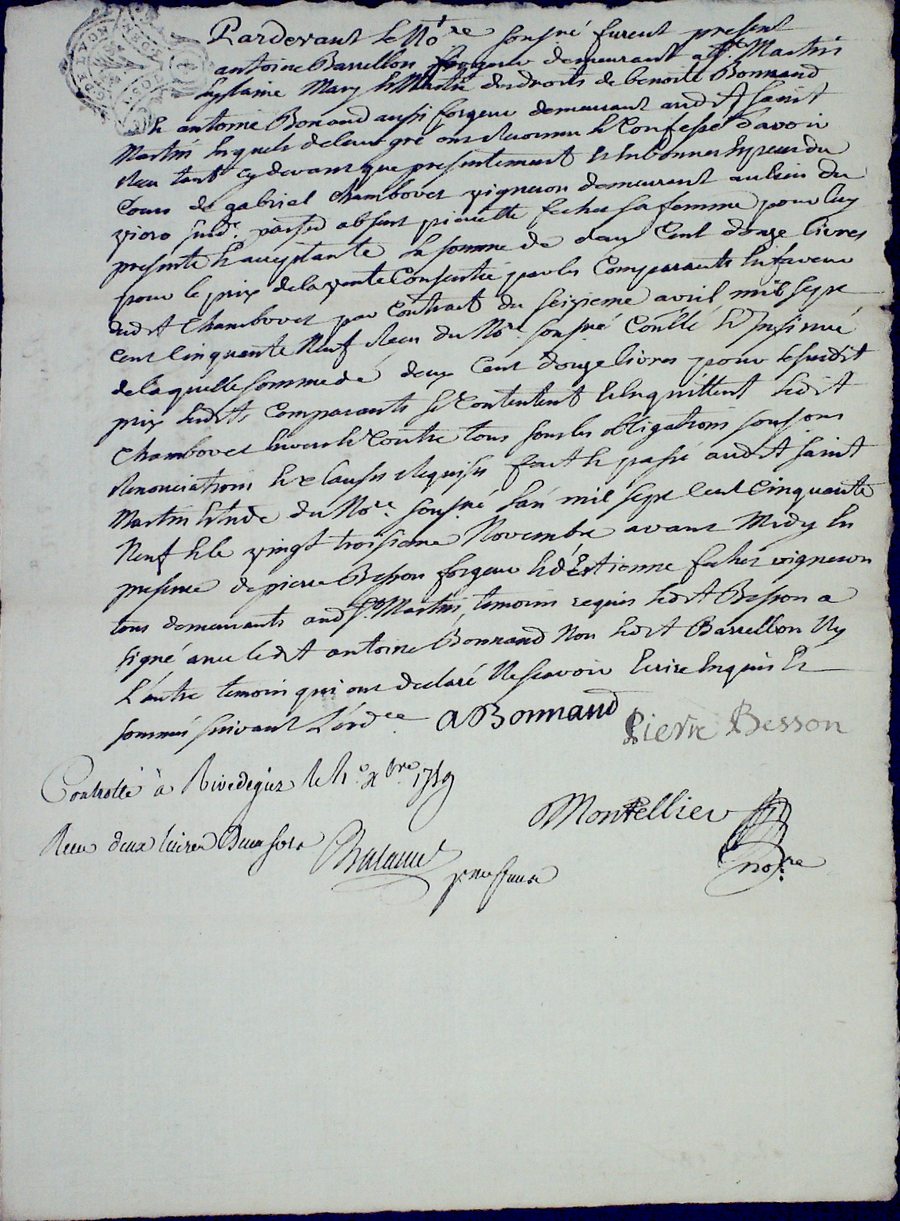 Pardevant le No.re sousné furent present
antoine Barrellon forgeur demeurant a St. Martin
comme Mary & Maitre des droits de benoite Bonnand
& antoine Bonand aussi forgeur demeurant audit saint
Martin lesquels de leur gré ont reconnu & Confessé d'avoir
receu tant cy devant que presentement en bonnes Especes du
Cours de gabriel Chambovet vigneron demeurant au lieu du
absent pierrette fecher sa femme pour luy
presente & acceptante la somme de deux Cent douze livres
pour le prix de la vente Consentie par les Comparants En faveur
dudit Chambovet par Contrat du seizieme avril mil sept
Cent Cinquante Neuf Receu du No.re sousné Contllé & Insinué
de laquelle somme de deux Cent douze livres pour le susdit
prix lesdits Comparants se Contentent & En quittent ledit
Chambovet Envers & Contre tous sous les obligations
Renonciations & Clauses Requises fait & passé audit saint
Martin Etude du No.re sousné L'an mil sept Cent Cinquante
Neuf & le vingt troisieme Novembre avant Midy En
presence de pierre Besson forgeur & d'Estienne fecher vigneron
tous demeurants audt St. Martin temoins requis ledit Besson a
signé avec ledit antoine Bonnand Non ledit Barrellon Ny
L'autre temoin qui ont declaré Ne scavoir Ecrire Enquis Et
sommés suivant L'ord.ce a Bonnand Pierre Besson
Controllé à Rivedegier le 1.e Xbre 1759
Montellier
Receu deux livres Deux sols
no.re